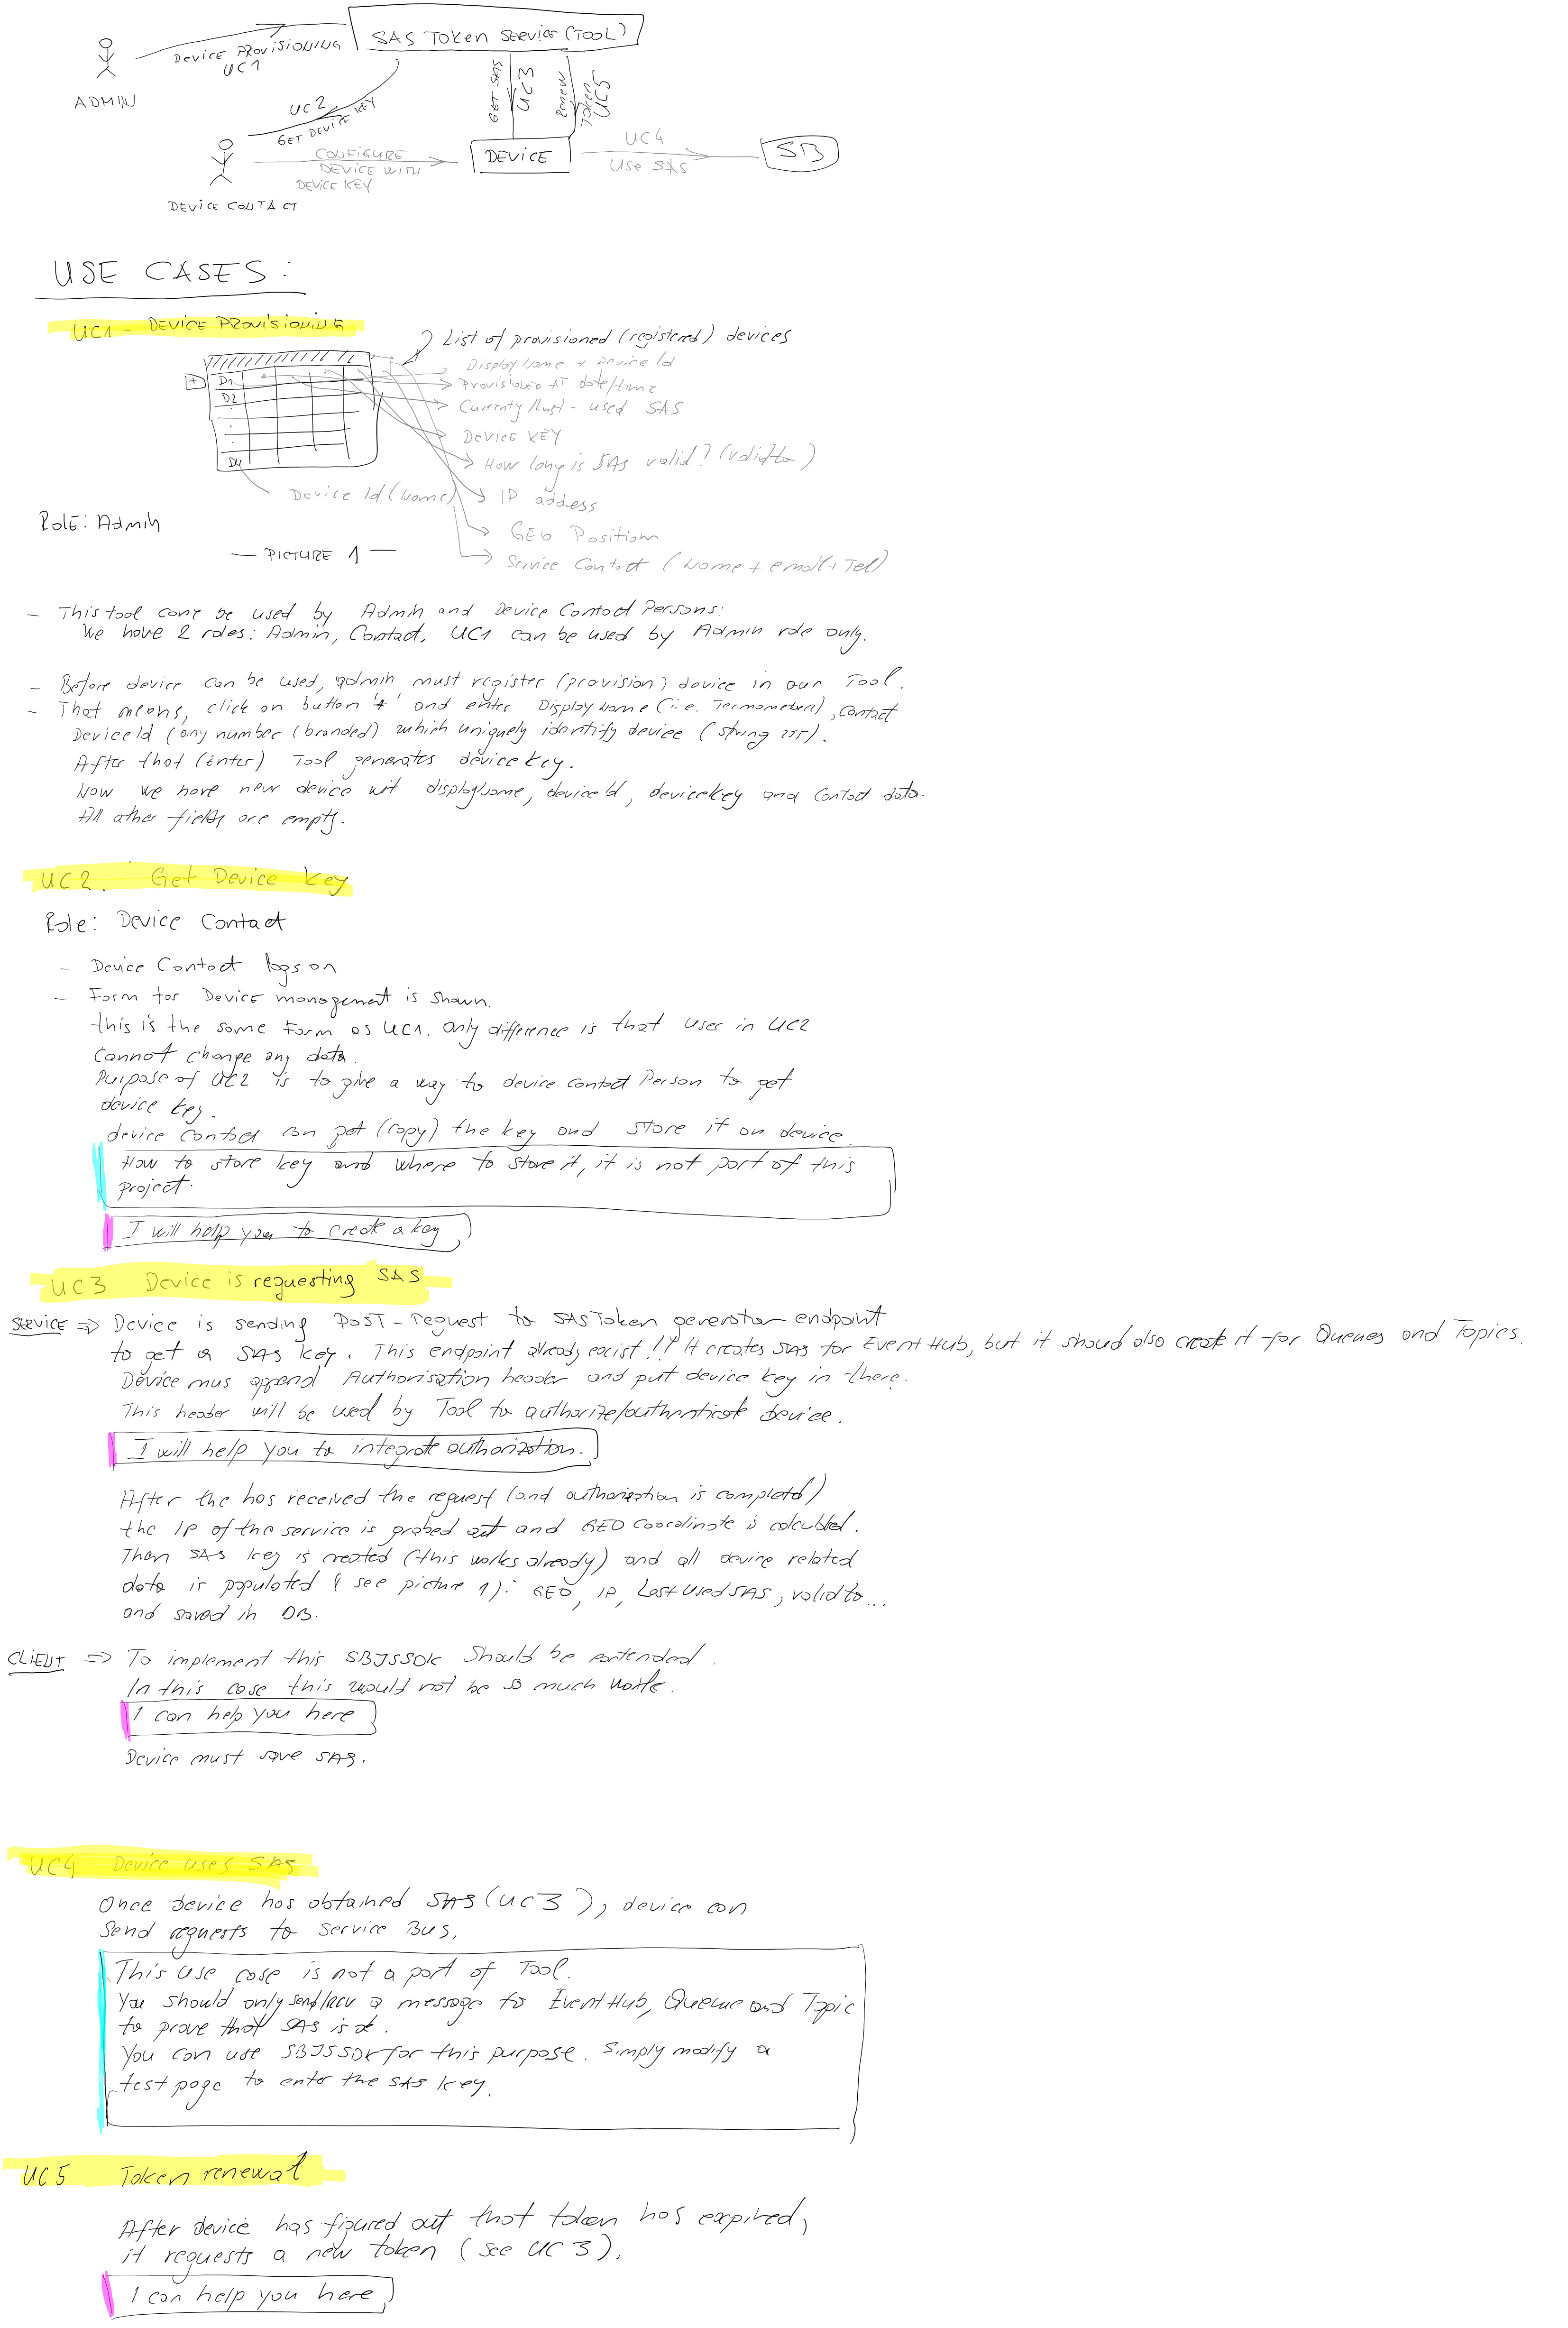 SAS TOKEN SERVICE (TOOL)
DEVICE PROVISIONING
UC1
ADMIN
UC2
GET DEVICE KEY
GET SAS
UC3
Renew
TOKEN
UC5
CONFIGURE
DEVICE WITH
DEVICE KEY
DEVICE
UC4
USE SAS
SB
DEVICE CONTACT
USE CASES:
UC1 - DEVICE PROVISIONING
List of provisioned (registered) devices
Display Name + Device Id
Provisioned AT date/time
Currenty/Last-used SAS
Device KEY
How long is SAS valid? (validto)
IP address
GEO Position
Service Contact (Name + email + Tel)
+
D1
D2
Device Id (Name)
Role: Admin
— PICTURE 1 —
- This tool can be used by Admin and Device Contact Persons:
We have 2 roles: Admin, Contact. UC1 can be used by Admin role only.
- Before device can be used, admin must register (provision) device in our Tool.
- That means, click on button '+' and enter DisplayName (i.e. Termometer), contact
DeviceId (any number (branded) which uniquely identify device (string 255).
After that (enter) Tool generates device key.
Now we have new device wit displayName, deviceId, deviceKey and Contact data.
All other fields are empty.
UC2. Get Device Key
Role: Device Contact
- Device Contact logs on
- Form for Device management is shown.
this is the same form as UC1. Only difference is that user in UC2
cannot change any data.
Purpose of UC2 is to give a way to device contact Person to get
device key.
device contact can get (copy) the key and store it on device.
How to store key and where to store it, it is not part of this
project.
I will help you to create a key
UC3 Device is requesting SAS
SERVICE => Device is sending POST-request to SASToken generator endpoint
to get a SAS key. This endpoint already exist!!! It creates SAS for EventHub, but it should also create it for Queues and Topics.
Device mus append Authorisation header and put device key in there.
This header will be used by Tool to authorize/authenticate device.
I will help you to integrate authorization.
After the has received the request (and authorization is completed)
the IP of the service is grabed out and GEO coordinate is calculated.
Then SAS key is created (this works already) and all device related
data is populated (see picture 1): GEO, IP, LastUsedSAS, validto...
and saved in DB.
CLIENT => To implement this SBJSSDK should be extended.
In this case this would not be so much work.
I can help you here
Device must save SAS.
UC4 Device uses SAS
Once device has obtained SAS (UC3), device can
send requests to Service Bus.
This use case is not a part of Tool.
You should only send/recv a message to EventHub, Queue and Topic
to prove that SAS is
You can use SBJSSDK for this purpose. Simply modify a
test page to enter the SAS key.
UC5 Token renewal
After device has figured out that token has expired,
it requests a new token (see UC3).
I can help you here